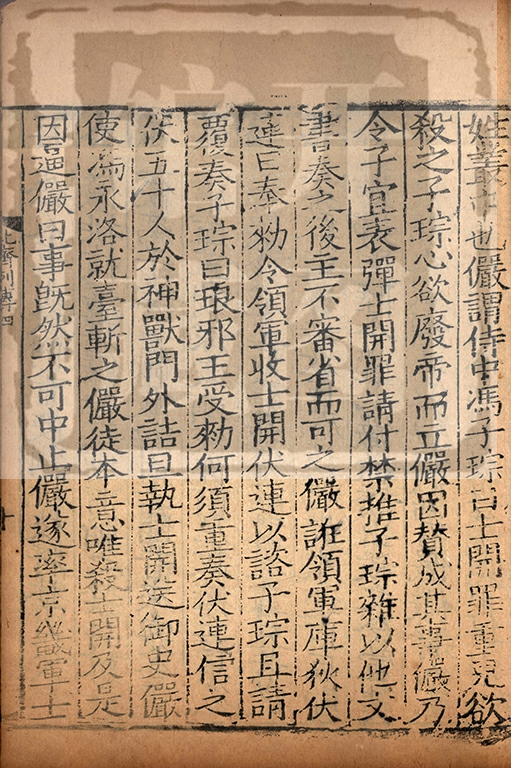 姓叢中也儼謂侍中馮子琮曰士開罪重兒欲
殺之子琮心欲廢帝而立儼因贊成其事儼乃
令子宜表彈士開罪請付禁推子琮雜以他文
書奏之後主不審省而可之儼誑領軍庫狄伏
連曰奉勑令領軍收士開伏連以諮子琮且請
覆奏子琮曰琅邪王受勑何須重奏伏連信之
伏五十人於神獸門外詰旦執士開送御史儼
使馮永洛就臺斬之儼徒本意唯殺士開及是
因逼儼曰事旣然不可中止儼遂率京畿軍士
齊列傳四